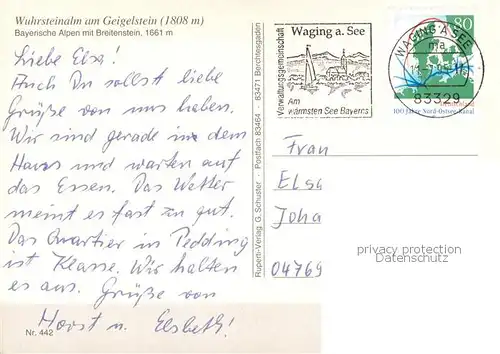 Wuhrsteinalm am Geigelstein (1808 m)
Bayerische Alpen mit Breitenstein, 1661 m
Liebe Elsa!
Auch Du sollst liebe
Grüße von uns haben.
Wir sind gerade in dem
Haus und warten auf
das Essen. Das Wetter
meint es fast zu gut.
Das Quartier in Pedding
ist Klasse. Wir halten
es aus. Grüße von
Horst u. Elsbeth!
Nr. 442
Ruperti-Verlag G. Schuster · Postfach 83464 · 83471 Berchtesgaden
Verwaltungsgemeinschaft
Waging a. See
Am
wärmsten See Bayerns
WAGING A SEE
ma
83329
80
100 Jahre Nord-Ostsee-Kanal
Frau
Elsa
Joha
04769
privacy protection
Datenschutz